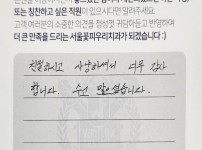 또는 칭찬하고 싶은 직원이 있으시다면 알려주세요.
고객 여러분의 소중한 의견을 정성껏 귀담아듣고 반영하여
더 큰 만족을 드리는 서울꽃피우리치과가 되겠습니다 :)
친절하시고 상냥하셔서 너무 감사
합니다. 수고 많으셨습니다.